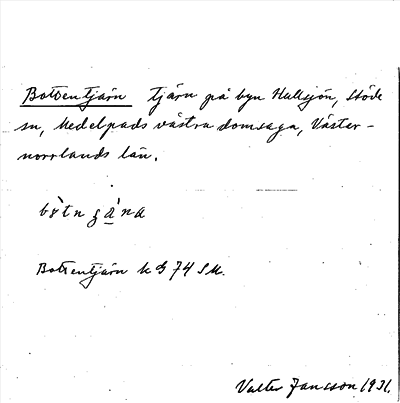 Botoentjärn tjärn på byn Hullsjön, Stöde
sn, Medelpads västra domsaga, Väster-
norrlands län.
Botoentjärn k G 74 SM.
Valter Jansson 1931.